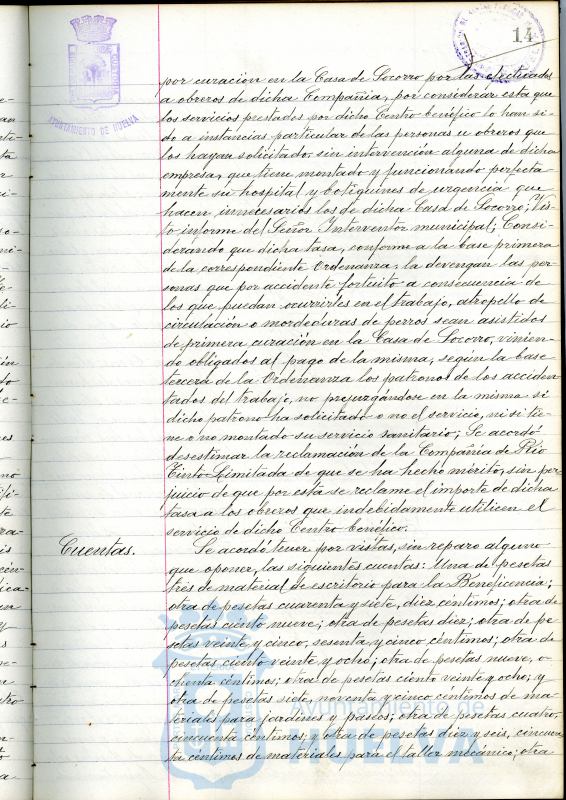 14
AYUNTAMIENTO DE HUELVA
por curación en la Casa de Socorro por las efectuadas
a obreros de dicha Compañia, por considerar esta que
los servicios prestados por dicho Centro benéfico lo han si-
do a instancias particular de las personas u obreros que
los hayan solicitado, sin intervención alguna de dicha
empresa, que tiene montado y funcionando perfecta-
mente su hospital y botiquines de urgencia que
hacen innecesarios los de dicha Casa de Socorro; Vis-
to informe del Señor Interventor municipal; Consi-
derando que dicha tasa, conforme a la base primera
de la correspondiente Ordenanza, la devengan las per-
sonas que por accidente fortuito a consecuencia de
los que puedan ocurrirles en el trabajo, atropello de
circulación o mordeduras de perros sean asistidos
de primera curación en la Casa de Socorro, vinien-
do obligados al pago de la misma, según la base
tercera de la Ordenanza los patronos de los acciden-
tados del trabajo, no prejuzgándose en la misma si
dicho patrono ha solicitado o no el servicio, ni si tie-
ne o no montado su servicio sanitario; Se acordó
desestimar la reclamación de la Compañia de Rio
Tinto Limitada de que se ha hecho mérito, sin per-
juicio de que por esta se reclame el importe de dicha
tasa a los obreros que indebidamente utilicen el
servicio de dicho Centro benéfico.
Cuentas.
Se acordó tener por vistas, sin reparo alguno
que oponer, las siguientes cuentas: Una de pesetas
tres de material de escritorio para la Beneficencia;
otra de pesetas cuarenta y siete, diez céntimos; otra de
pesetas ciento nueve; otra de pesetas diez; otra de pe-
setas veinte y cinco, sesenta y cinco céntimos; otra de
pesetas ciento veinte y ocho; otra de pesetas nueve, o-
chenta céntimos; otra de pesetas ciento veinte y ocho; y
otra de pesetas siete, noventa y cinco céntimos de ma-
teriales para jardines y paseos; otra de pesetas cuatro,
cincuenta céntimos; y otra de pesetas diez y seis, cincuen-
ta céntimos de materiales para el taller mecánico; otra
Ayuntamiento de